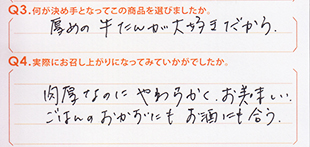 Q3.何が決め手となってこの商品を選びましたか。
厚めの牛たんが大好きだから。
Q4.実際にお召し上がりになってみていかがでしたか。
肉厚なのにやわらかく、お美味しい。
ごはんのおかずにもお酒にも合う。